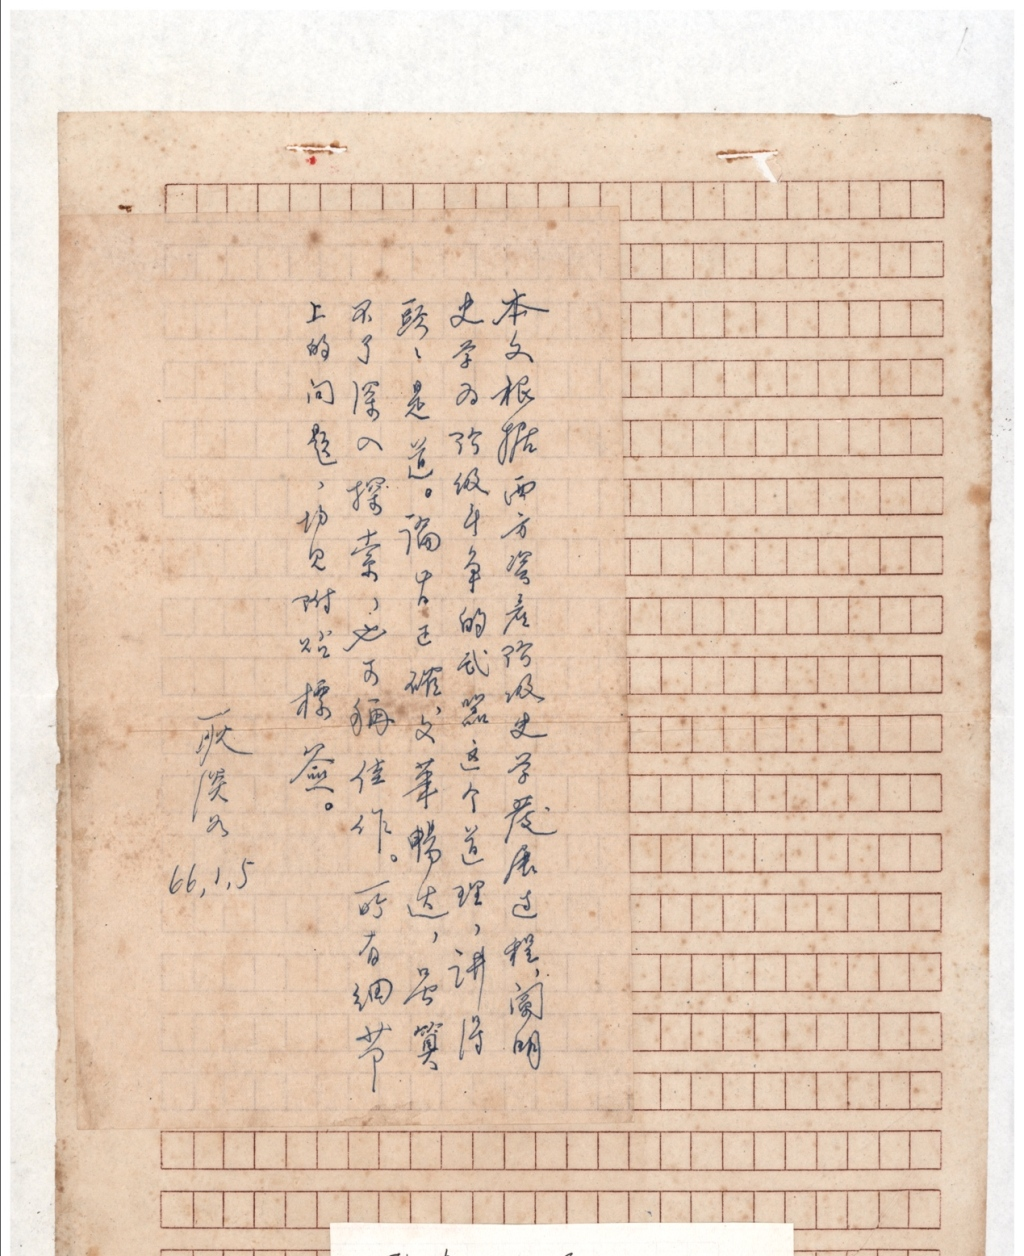 本文根据西方资产阶级史学发展过程，阐明
史学为阶级斗争的武器这个道理，讲得
头々是道。论旨正确，文笔畅达，虽算
不了深入探索，也可称佳作。所有细节
上的问题，均见附贴标签。
耿淡如
66,1,5